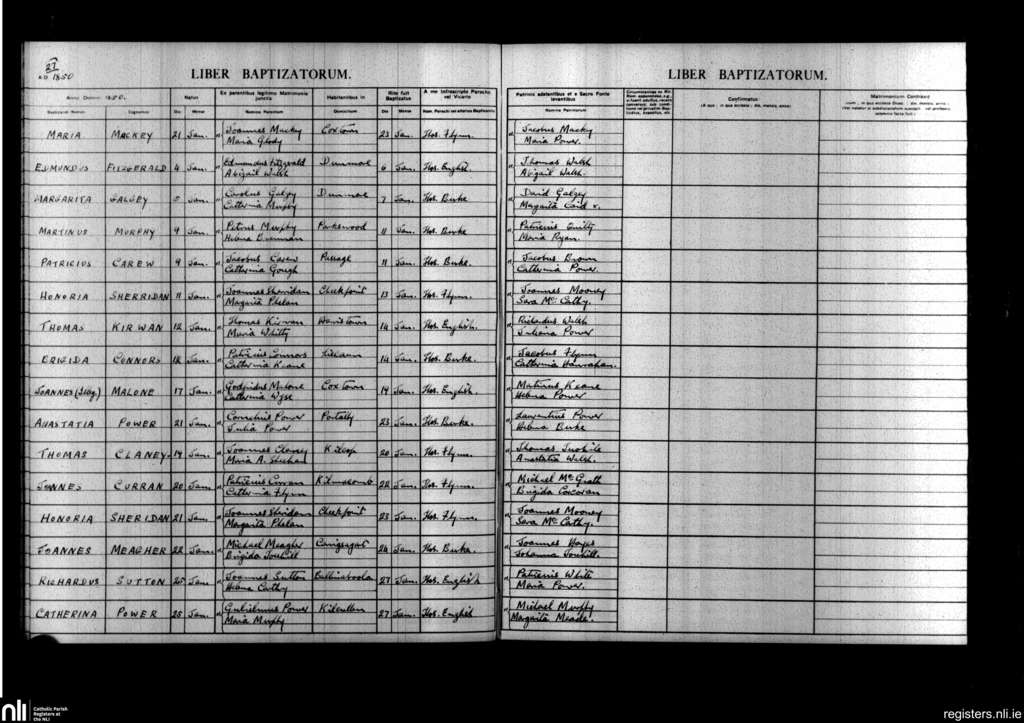 27
A.D 1850
LIBER BAPTIZATORUM.
LIBER BAPTIZATORUM.
Anno Domini 1850.
Natus
Ex parentibus legitimo Matrimonio junctis
Habitantibus in
Rite fuit Baptizatus
A me infrascripto Parocho vel Vicario
Patrinis adstantibus et e Sacro Fonte levantibus
Confirmatus
Matrimonium Contraxit
Baptizati Nomen
Cognomen
Die
Mense
Nomina Parentum
Domicilium
Die
Mense
Nomina Patrinorum
MARIA MACKEY 21 Jan. Joannes Mackey Coxtown 23 Jan. Thos. Flynn. Jacobus Mackey
Maria Maria Power.
EDMUNDUS FITZGERALD 4 Jan. Edmundus Fitzgerald Dunmore 6 Jan. Thos. English. Thomas Walsh
Abigail Walsh Abigail Walsh.
MARGARITA GALGEY 5 Jan. Carolus Galgey Dunmore 7 Jan. Thos. Burke David Galgey
Catherina Murphy Margarita
MARTINUS MURPHY 9 Jan. Petrus Murphy Parkswood 11 Jan. Thos. Burke Patricius Quilty
Helena Brennan Maria Ryan.
PATRICIUS CAREW 9 Jan. Jacobus Carew Passage 11 Jan. Thos. Burke. Jacobus Brown
Catherina Gough Catherina Power.
HONORIA SHERRIDAN 11 Jan. Joannes Sherridan Cheekpoint 13 Jan. Thos. Flynn. Joannes Mooney
Margarita Phelan Sara Mc Cathy.
THOMAS KIRWAN 12 Jan. Thomas Kirwan 14 Jan. Thos. English. Richardus Walsh
Maria Whitty Juliana Power
BRIGIDA CONNORS 12 Jan. Patricius Connors 14 Jan. Thos. Burke. Jacobus Flynn
Catherina Keane Catherina Hanrahan.
JOANNES MALONE 17 Jan. Godfridus Malone Coxtown 19 Jan. Thos. English. Maturius Keane
Catherina Wyse Helena Power
ANASTATIA POWER 21 Jan. Cornelius Power Portally 23 Jan. Thos. Burke. Laurentius Power
Julia Power Helena Burke
THOMAS CLANEY. 19 Jan. Joannes Claney Kilcop 20 Jan. Thos. Flynn. Thomas
Maria A. Sheehan Anastatia Walsh.
JONNES CURRAN 20 Jan. Patricius Curran Kilmacomb 22 Jan. Thos. Flynn. Michael McGrath
Catherina Flynn Brigida Corcoran
HONORIA SHERIDAN 21 Jan. Joannes Sheridan Cheekpoint 23 Jan. Thos. Flynn. Joannes Mooney
Margarita Phelan Sara McCathy.
JOANNES MEAGHER 22 Jan. Michael Meagher 24 Jan. Thos. Burke. Joannes Hayes
Brigida Touhill Johanna Touhill.
RICHARDUS SUTTON 25 Jan Joannes Sutton 27 Jan. Thos. English Patricius White
Helena Cathy Maria Power.
CATHERINA POWER 25 Jan. Gulielmus Power Kilcullen 27 Jan. Thos. English Michael Murphy
Maria Murphy Margarita Meade.
nli
Catholic Parish
Registers at
the NLI
registers.nli.ie